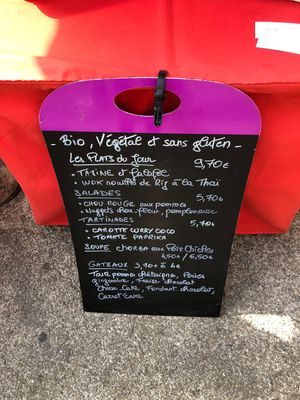 - Bio, Végétal et sans gluten -
Les Plats du Jour 9,70€
• Tajine et Falafel
• Wok nouilles de Riz à la Thai
Salades 5,70€
• Chou rouge aux pommes
• Nuggets chou fleur, pamplemousse
Tartinades 5,70€
• Carotte curry coco
• Tomate paprika
Soupe chorba aux Pois Chiches
4,50€ / 6,50€
Gateaux 3,90€ à 4€
Tarte pomme châtaigne, Poire
gingembre, Fraise chocolat
Cheese Cake, Fondant chocolat,
Carrot Cake